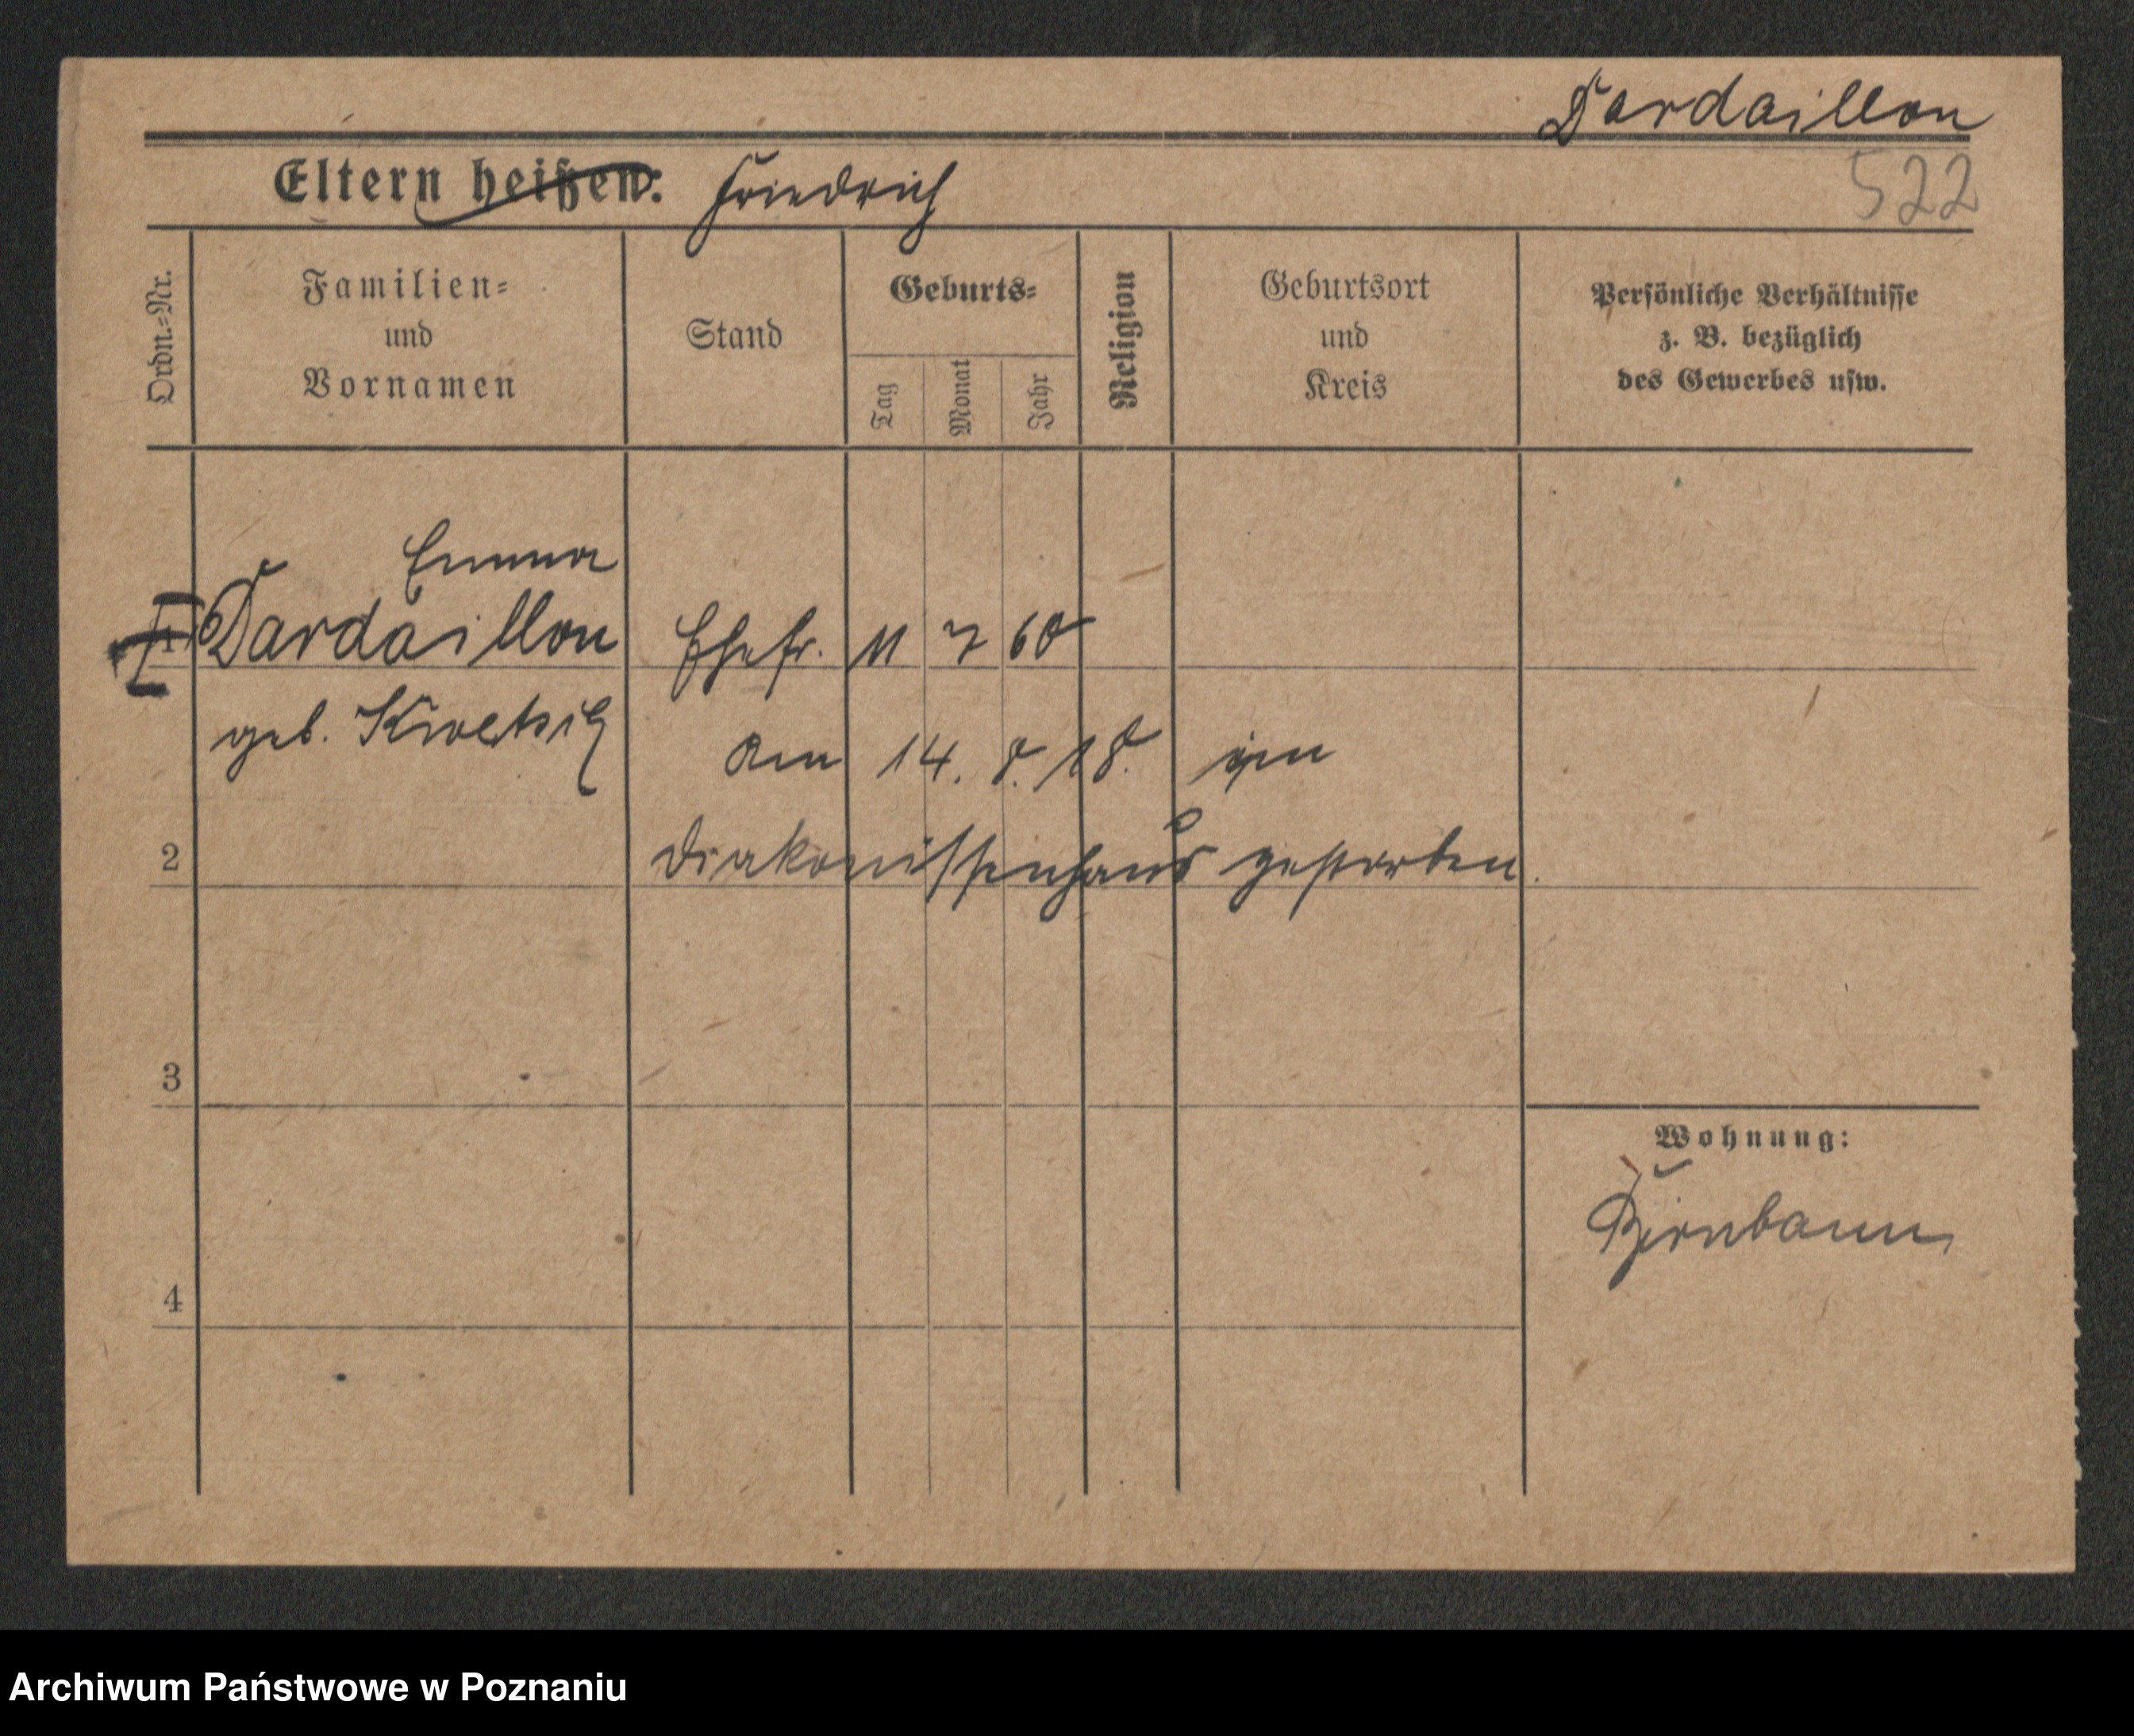 Dardaillon
Eltern heißen: Friedrich
522
Ordn.=Nr.
Familien=
und
Vornamen
Stand
Geburts=
Tag
Monat
Jahr
Religion
Geburtsort
und
Kreis
Persönliche Verhältnisse
z. B. bezüglich
des Gewerbes usw.
Emma
Dardaillon Ehefr. 11 7 60
geb.
am 14. 8. 18. im
2 Diakonissenhaus gestorben.
3
Wohnung:
Birnbaum
4
Archiwum Państwowe w Poznaniu